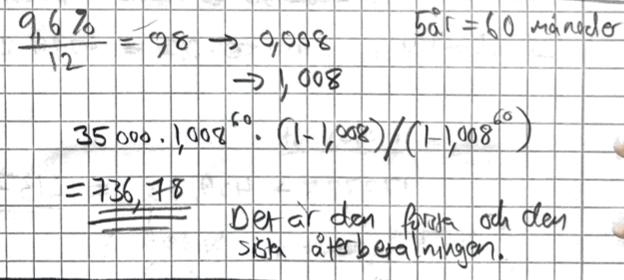 9,6% / 12 = 98 → 0,008 5år = 60 månader
→ 1,008
35 000 . 1,008^60 . (1-1,008)/(1-1,008^60)
= 736,78
Det är den första och den
sista återbetalningen.